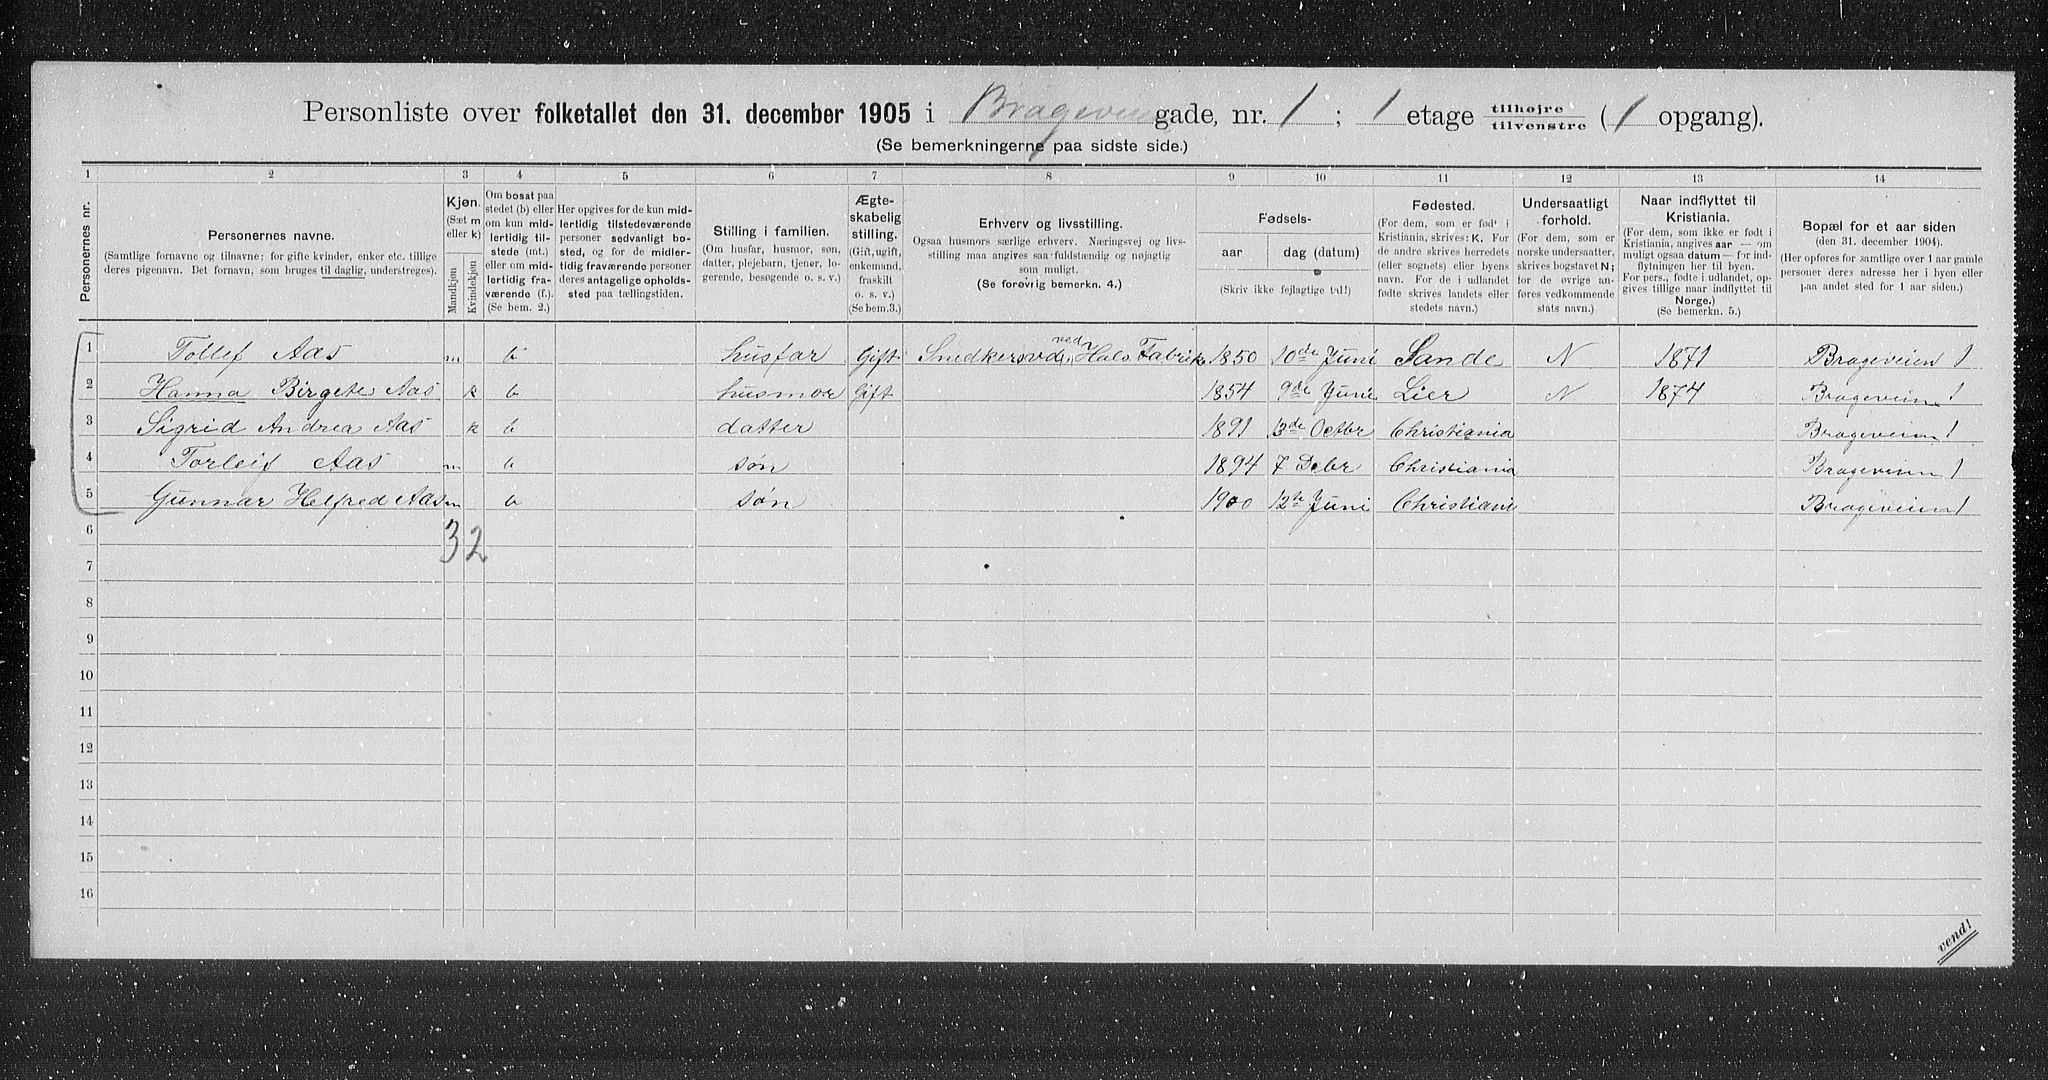 Personliste over folketallet den 31. december 1905 i Brageveien gade, nr. 1 ; 1 etage tilhøjre tilvenstre ( 1 opgang).
(Se bemerkningerne paa sidste side.)
1 2 3 4 5 6 7 8 9 10 11 12 13 14
Personernes nr.
Personernes navne.
(Samtlige fornavne og tilnavne; for gifte kvinder, enker etc. tillige
deres pigenavn. Det fornavn, som bruges til daglig, understreges).
Kjøn.
(Sæt m
eller k)
Mandkjøn
Kvindekjøn
Om bosat paa
stedet (b) eller
om kun mid-
lertidig til-
stede (mt.)
eller om mid-
lertidig fra-
værende (f.).
(Se bem. 2.)
Her opgives for de kun mid-
lertidig tilstedeværende
personer sedvanlig bo-
sted, og for de midler-
tidig fraværende personer
deres antagelige opholds-
sted paa tællingstiden.
Stilling i familien.
(Om husfar, husmor, søn,
datter, plejebarn, tjener, lo-
gerende, besøgende o. s. v.)
Ægte-
skabelig
stilling.
(Gift, ugift,
enkemand,
fraskilt
o. s. v.)
(Se bem. 3.)
Erhverv og livsstilling.
Ogsaa husmors særlige erhverv. Næringsvej og livs-
stilling maa angives saa fuldstændig og nøjagtig
som muligt.
(Se forøvrig bemerkn. 4.)
Fødsels-
aar
dag (datum)
(Skriv ikke fejlagtige tal!)
Fødested.
(For dem, som er født i
Kristiania, skrives: K. For
de andre skrives herredets
(eller sognets) eller byens
navn. For de i udlandet
fødte skrives landets eller
stedets navn.)
Undersaatligt
forhold.
(For dem, som er
norske undersaatter,
skrives bogstavet N;
for de øvrige an-
føres vedkommende
stats navn.)
Naar indflyttet til
Kristiania.
(For dem, som ikke er født i
Kristiania, angives aar — om
muligt ogsaa datum — for ind-
flytningen her til byen.
For pers., fødte i udlandet, op-
gives tillige naar indflyttet til
Norge.)
(Se bemerkn. 5.)
Bopæl for et aar siden
(den 31. december 1904).
(Her opføres for samtlige over 1 aar gamle
personer deres adresse her i byen eller
paa andet sted for 1 aar siden.)
1 Tollef Aas m b husfar Gift ved Fabrik 1850 10de Juni Sande N 1871 Brageveien 1
2 Hanna Birgete Aas k b husmor Gift 1854 9de Juni Lier N 1874 Brageveien 1
3 Sigrid Andrea Aas k b datter 1891 13de Octbr Christiania Brageveien 1
4 Torleif Aas m b søn 1894 7 Debr Christiania Brageveien 1
5 Gunnar Helfred Aas m b søn 1900 12te Juni Christiani Brageveien 1
6
3 2
7
8
9
10
11
12
13
14
15
16
vend!